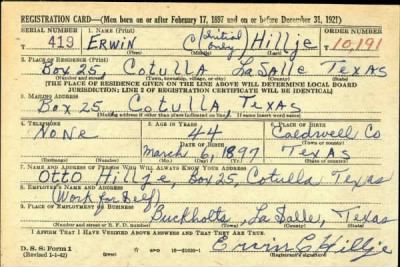 REGISTRATION CARD—(Men born on or after February 17, 1897 and on or before December 31, 1921)
SERIAL NUMBER 1. NAME (Print) ORDER NUMBER
419 ERWIN C (initial only) Hillje 10,191
(First) (Middle) (Last)
2. PLACE OF RESIDENCE (Print)
Box 25 Cotulla LaSalle Texas
(Number and street) (Town, township, village, or city) (County) (State)
[THE PLACE OF RESIDENCE GIVEN ON THE LINE ABOVE WILL DETERMINE LOCAL BOARD
JURISDICTION; LINE 2 OF REGISTRATION CERTIFICATE WILL BE IDENTICAL]
3. MAILING ADDRESS
Box 25 Cotulla, Texas
(Mailing address if other than place indicated on line 2. If same insert word same)
4. TELEPHONE 5. AGE IN YEARS 6. PLACE OF BIRTH
None 44 Caldwell Co
DATE OF BIRTH (Town or county)
March 6, 1897 Texas
(Exchange) (Number) (Mo.) (Day) (Yr.) (State or country)
7. NAME AND ADDRESS OF PERSON WHO WILL ALWAYS KNOW YOUR ADDRESS
Otto Hillje, Box 25, Cotulla Texas
8. EMPLOYER'S NAME AND ADDRESS
(Work for Self)
9. PLACE OF EMPLOYMENT OR BUSINESS
Buckholts, La Salle, Texas
(Number and street or R. F. D. number) (Town) (County) (State)
I AFFIRM THAT I HAVE VERIFIED ABOVE ANSWERS AND THAT THEY ARE TRUE.
D. S. S. Form 1 Erwin C Hillje
(Revised 1-1-42) GPO (Registrant's signature)